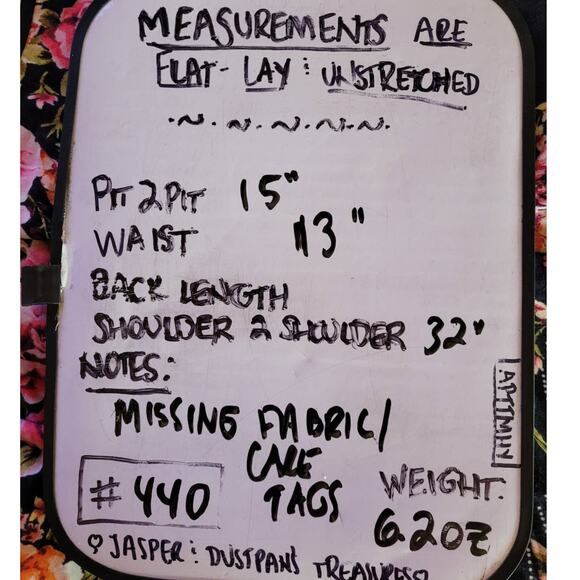 MEASUREMENTS ARE
FLAT-LAY : UNSTRETCHED
PIT 2 PIT 15"
WAIST 13"
BACK LENGTH
SHOULDER 2 SHOULDER 32"
NOTES:
MISSING FABRIC/
CARE
TAGS
#440
WEIGHT:
6.2oz
♡ JASPER : DUSTPANS TREASURES♡